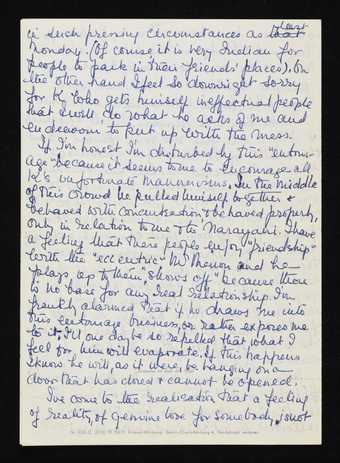 in such pressing circumstances as last
Monday. (Of course it is very Indian for
people to park in their friends' places). On
the other hand I feel so downright sorry
for K, who gets himself ineffectual people
that I will do what he asks of me and
endeavour to put up with the mess.
If I'm honest I'm disturbed by this "entour-
age" because it seems to me to encourage all
K's unfortunate mannerisms. In the middle
of this crowd he pulled himself together &
behaved with concentration & behaved properly,
only in relation to me & to Narayani. I have
a feeling that these people enjoy "friendship"
with the "eccentric" Mr Menon and he
"plays up to them", "shows off" because there
is no base for any real relationship. I'm
frankly alarmed that if he draws me into
this entourage business, or rather exposes me
to it, I'll one day be so repelled that what I
feel for him will evaporate. If this happens
I know he will, as it were, be hanging on a
door that has closed & cannot be opened.
I've come to the realisation that a feeling
of reality, of genuine love for somebody, is not